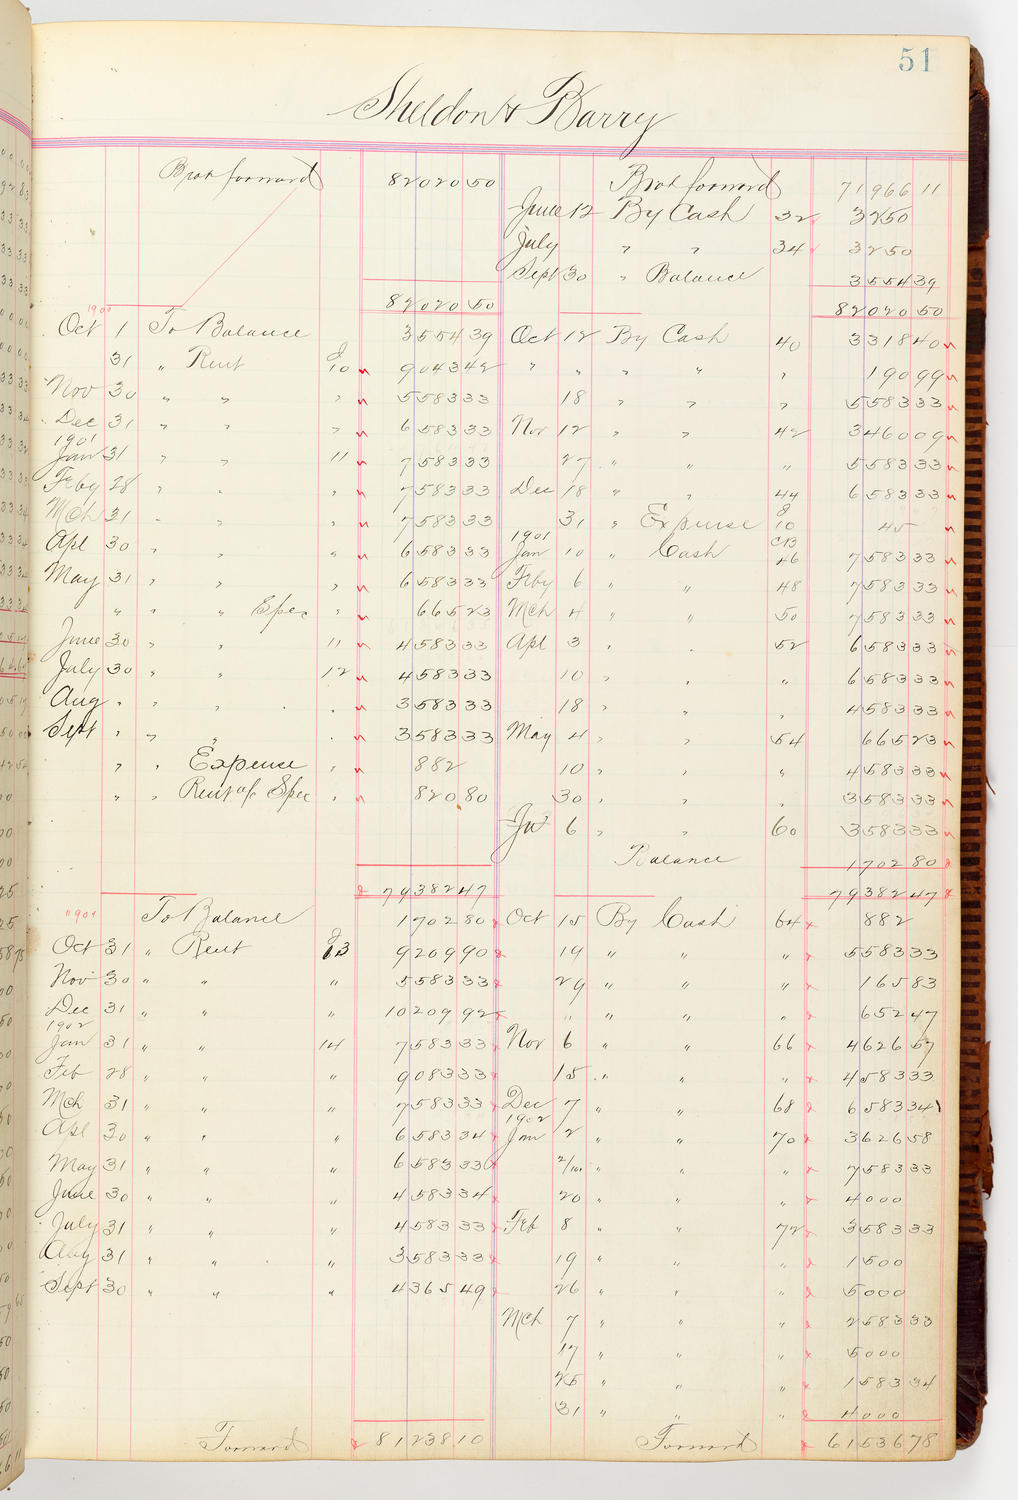 51
Sheldon & Barry
Brot forward 82020 50
82020 50
1900
Oct 1 To Balance 3554 39
31 " Rent J 10 9043 42
Nov 30 " " " 5583 33
Dec 31 " " " 6583 33
1901
Jan 31 " " 11 7583 33
Feby 28 " " " 7583 33
Mch 31 " " " 7583 33
Apl 30 " " " 6583 33
May 31 " " " 6583 33
" " " Spec " 665 23
June 30 " " 11 4583 33
July 30 " " 12 4583 33
Aug " " " " 3583 33
Sept " " " " 3583 33
" " Expense " 8 82
" " Rent of Spec " 820 80
79382 47
1901
To Balance 1702 80
Oct 31 " Rent J 13 9209 90
Nov 30 " " " 5583 33
Dec 31 " " " 10209 92
1902
Jan 31 " " 14 7583 33
Feb 28 " " " 9083 33
Mch 31 " " " 7583 33
Apl 30 " " " 6583 34
May 31 " " " 6583 33
June 30 " " " 4583 34
July 31 " " " 4583 33
Aug 31 " " " 3583 33
Sept 30 " " " 4365 49
Forward 81238 10
Brot forward 71966 11
June 12 By Cash 32 3250
July " " 34 3250
Sept 30 " Balance 3554 39
82020 50
Oct 12 By Cash 40 3318 40
" " " " " 190 99
18 " " " 5583 33
Nov 12 " " 42 3460 09
27 " " " 5583 33
Dec 18 " " 44 6583 33
31 " Expense J 10 45
1901
Jan 10 " Cash CB 46 7583 33
Feby 6 " " 48 7583 33
Mch 4 " " 50 7583 33
Apl 3 " " 52 6583 33
10 " " " 6583 33
18 " " " 4583 33
May 4 " " 54 665 23
10 " " " 4583 33
30 " " " 3583 33
6 " " 60 3583 33
Balance 1702 80
79382 47
Oct 15 By Cash 64 8 82
19 " " " 5583 33
29 " " " 165 83
" " " " 652 47
Nov 6 " " 66 4626 57
15 " " " 4583 33
Dec 7 " " 68 6583 34
1902
Jan 2 " " 70 3626 58
" " " 7583 33
20 " " " 40 00
Feb 8 " " 72 3583 33
19 " " " 15 00
26 " " " 50 00
Mch 7 " " " 2583 33
17 " " " 50 00
25 " " " 1583 34
31 " " " 40 00
Forward 61536 78